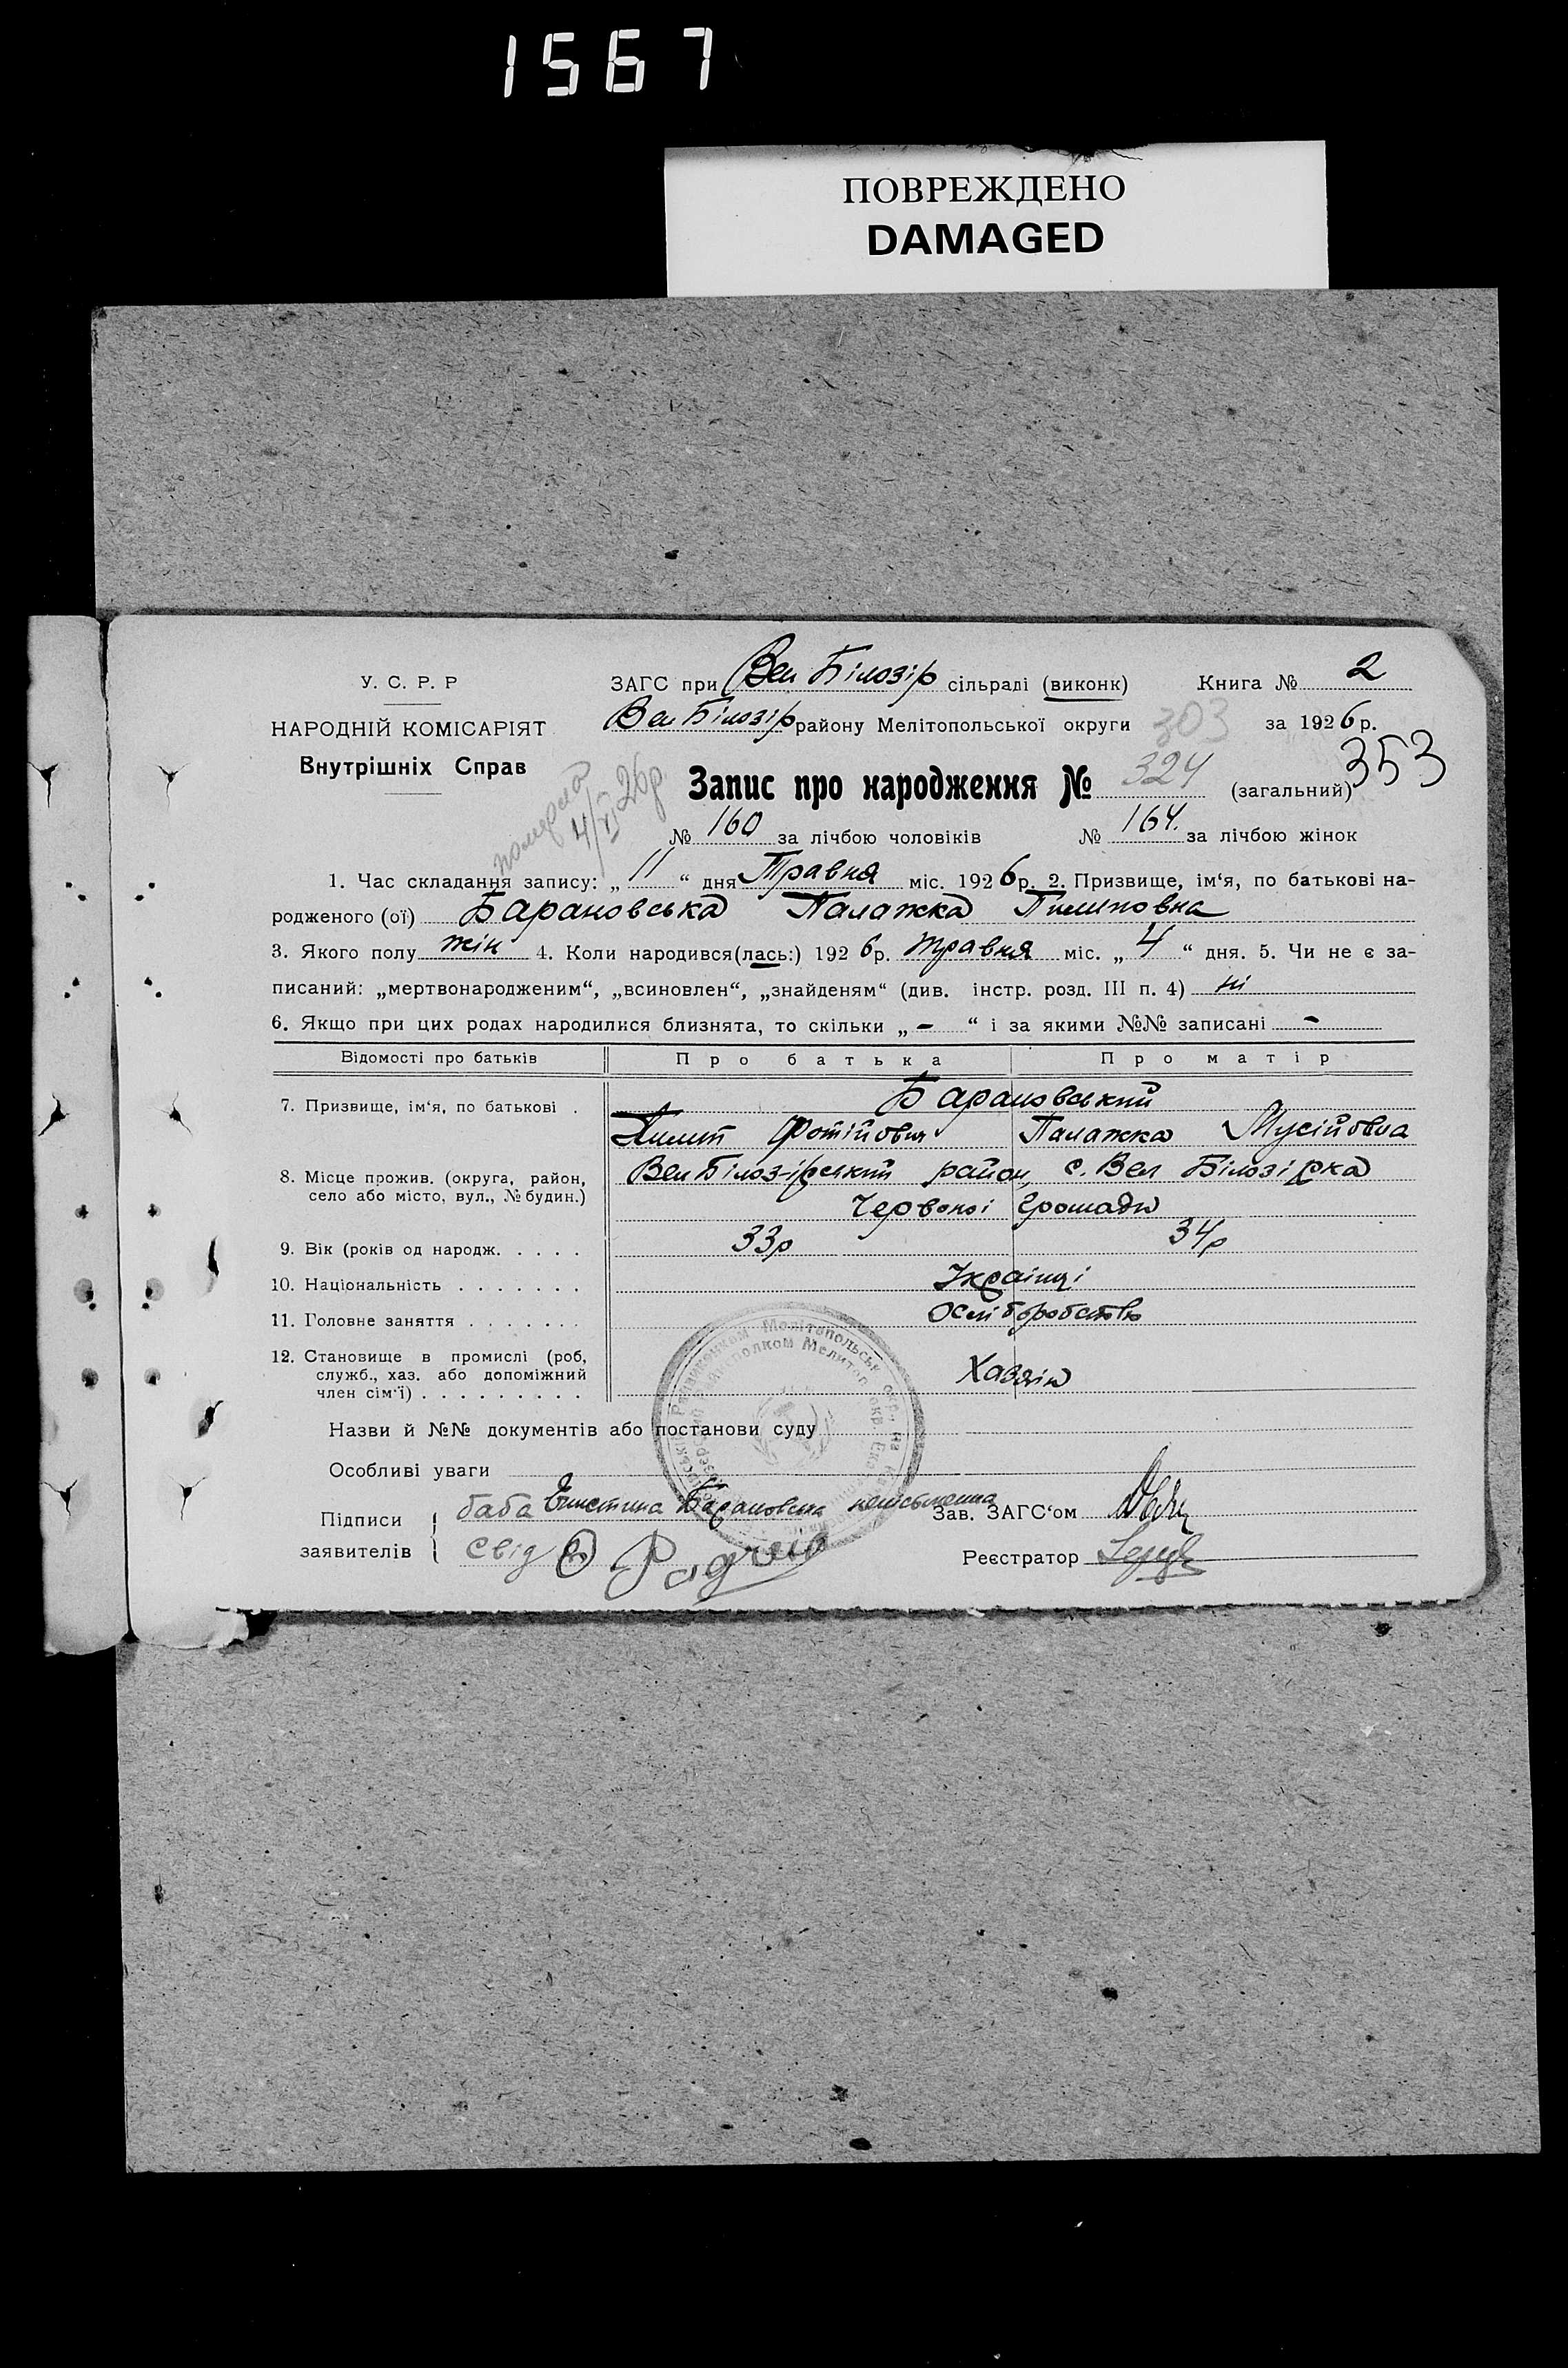 1567
ПОВРЕЖДЕНО
DAMAGED
У. С. Р. Р
НАРОДНІЙ КОМІСАРІЯТ
Внутрішніх Справ
ЗАГС при Вел Білозір сільраді (виконк) Книга № 2
Вел Білозір району Мелітопольської округи 303 за 1926 р.
353
Запис про народження № 324 (загальний)
померла 4/VI 26р
№ 160 за лічбою чоловіків № 164. за лічбою жінок
1. Час складання запису: „ 11 “ дня Травня міс. 1926 р. 2. Призвище, ім‘я, по батькові на-
родженого (ої) Барановська Палажка Пилиповна
3. Якого полу жін 4. Коли народився(лась:) 1926 р. травня міс. „ 4 “ дня. 5. Чи не є за-
писаний: „мертвонародженим“, „всиновлен“, „знайденям“ (див. інстр. розд. III п. 4) ні
6. Якщо при цих родах народилися близнята, то скільки „ - “ і за якими №№ записані -
Відомості про батьків Про батька Про матір
7. Призвище, ім‘я, по батькові . Барановський
Пилип Фотійович Палажка Мусійовна
8. Місце прожив. (округа, район, Вел Білозірський район, с. Вел Білозірка
село або місто, вул., № будин.)
Червоної Громади
9. Вік (років од народж. . . . . 33р 34р
10. Національність . . . . . . . Українці
11. Головне заняття . . . . . . . хліборобство
12. Становище в промислі (роб,
служб., хаз. або допоміжний Хазяїн
член сім‘ї) . . . . . . . . .
Назви й №№ документів або постанови суду
Особливі уваги
Підписи баба Барановська неписьменна Зав. ЗАГС‘ом
заявителів свід Реєстратор